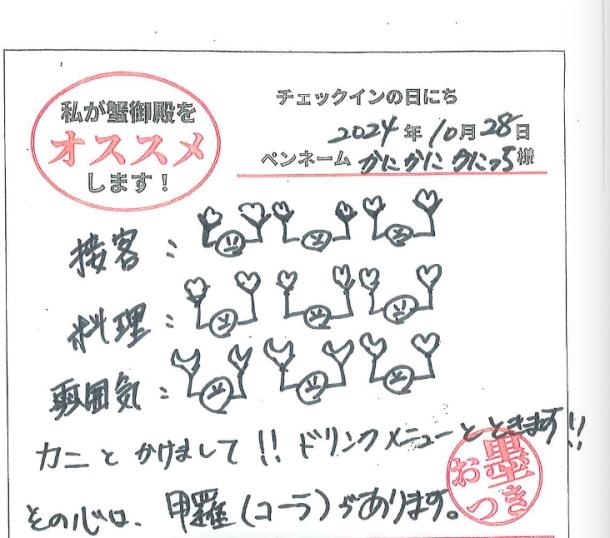 私が蟹御殿を
オススメ
します！
チェックインの日にち
2024年10月28日
ペンネーム かにかに かにっち様
接客：
料理：
雰囲気：
カニとかけまして!! ドリンクメニューとときます!!
その心は、甲羅(コーラ)があります。
お墨つき